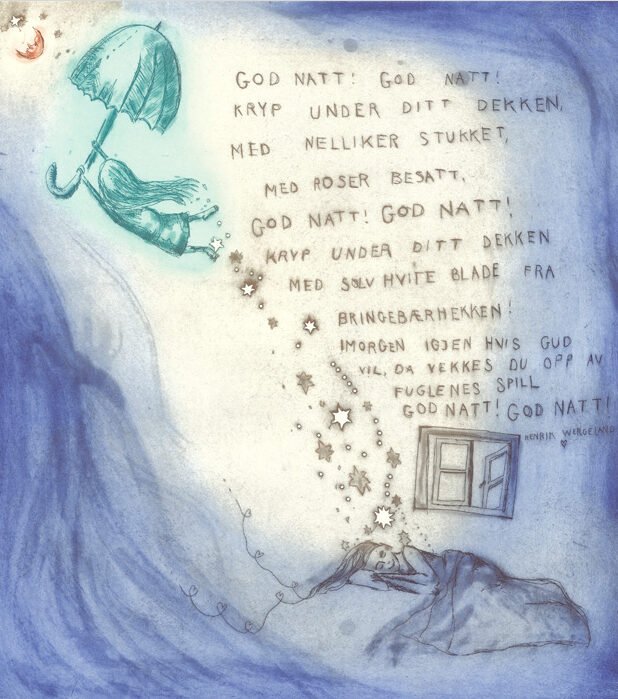 GOD NATT! GOD NATT!
KRYP UNDER DITT DEKKEN,
MED NELLIKER STUKKET,
MED ROSER BESATT,
GOD NATT! GOD NATT!
KRYP UNDER DITT DEKKEN
MED SØLVHVITE BLADE FRA
BRINGEBÆRHEKKEN!
IMORGEN IGJEN HVIS GUD
VIL, DA VEKKES DU OPP AV
FUGLENES SPILL
GOD NATT! GOD NATT!
HENRIK WERGELAND